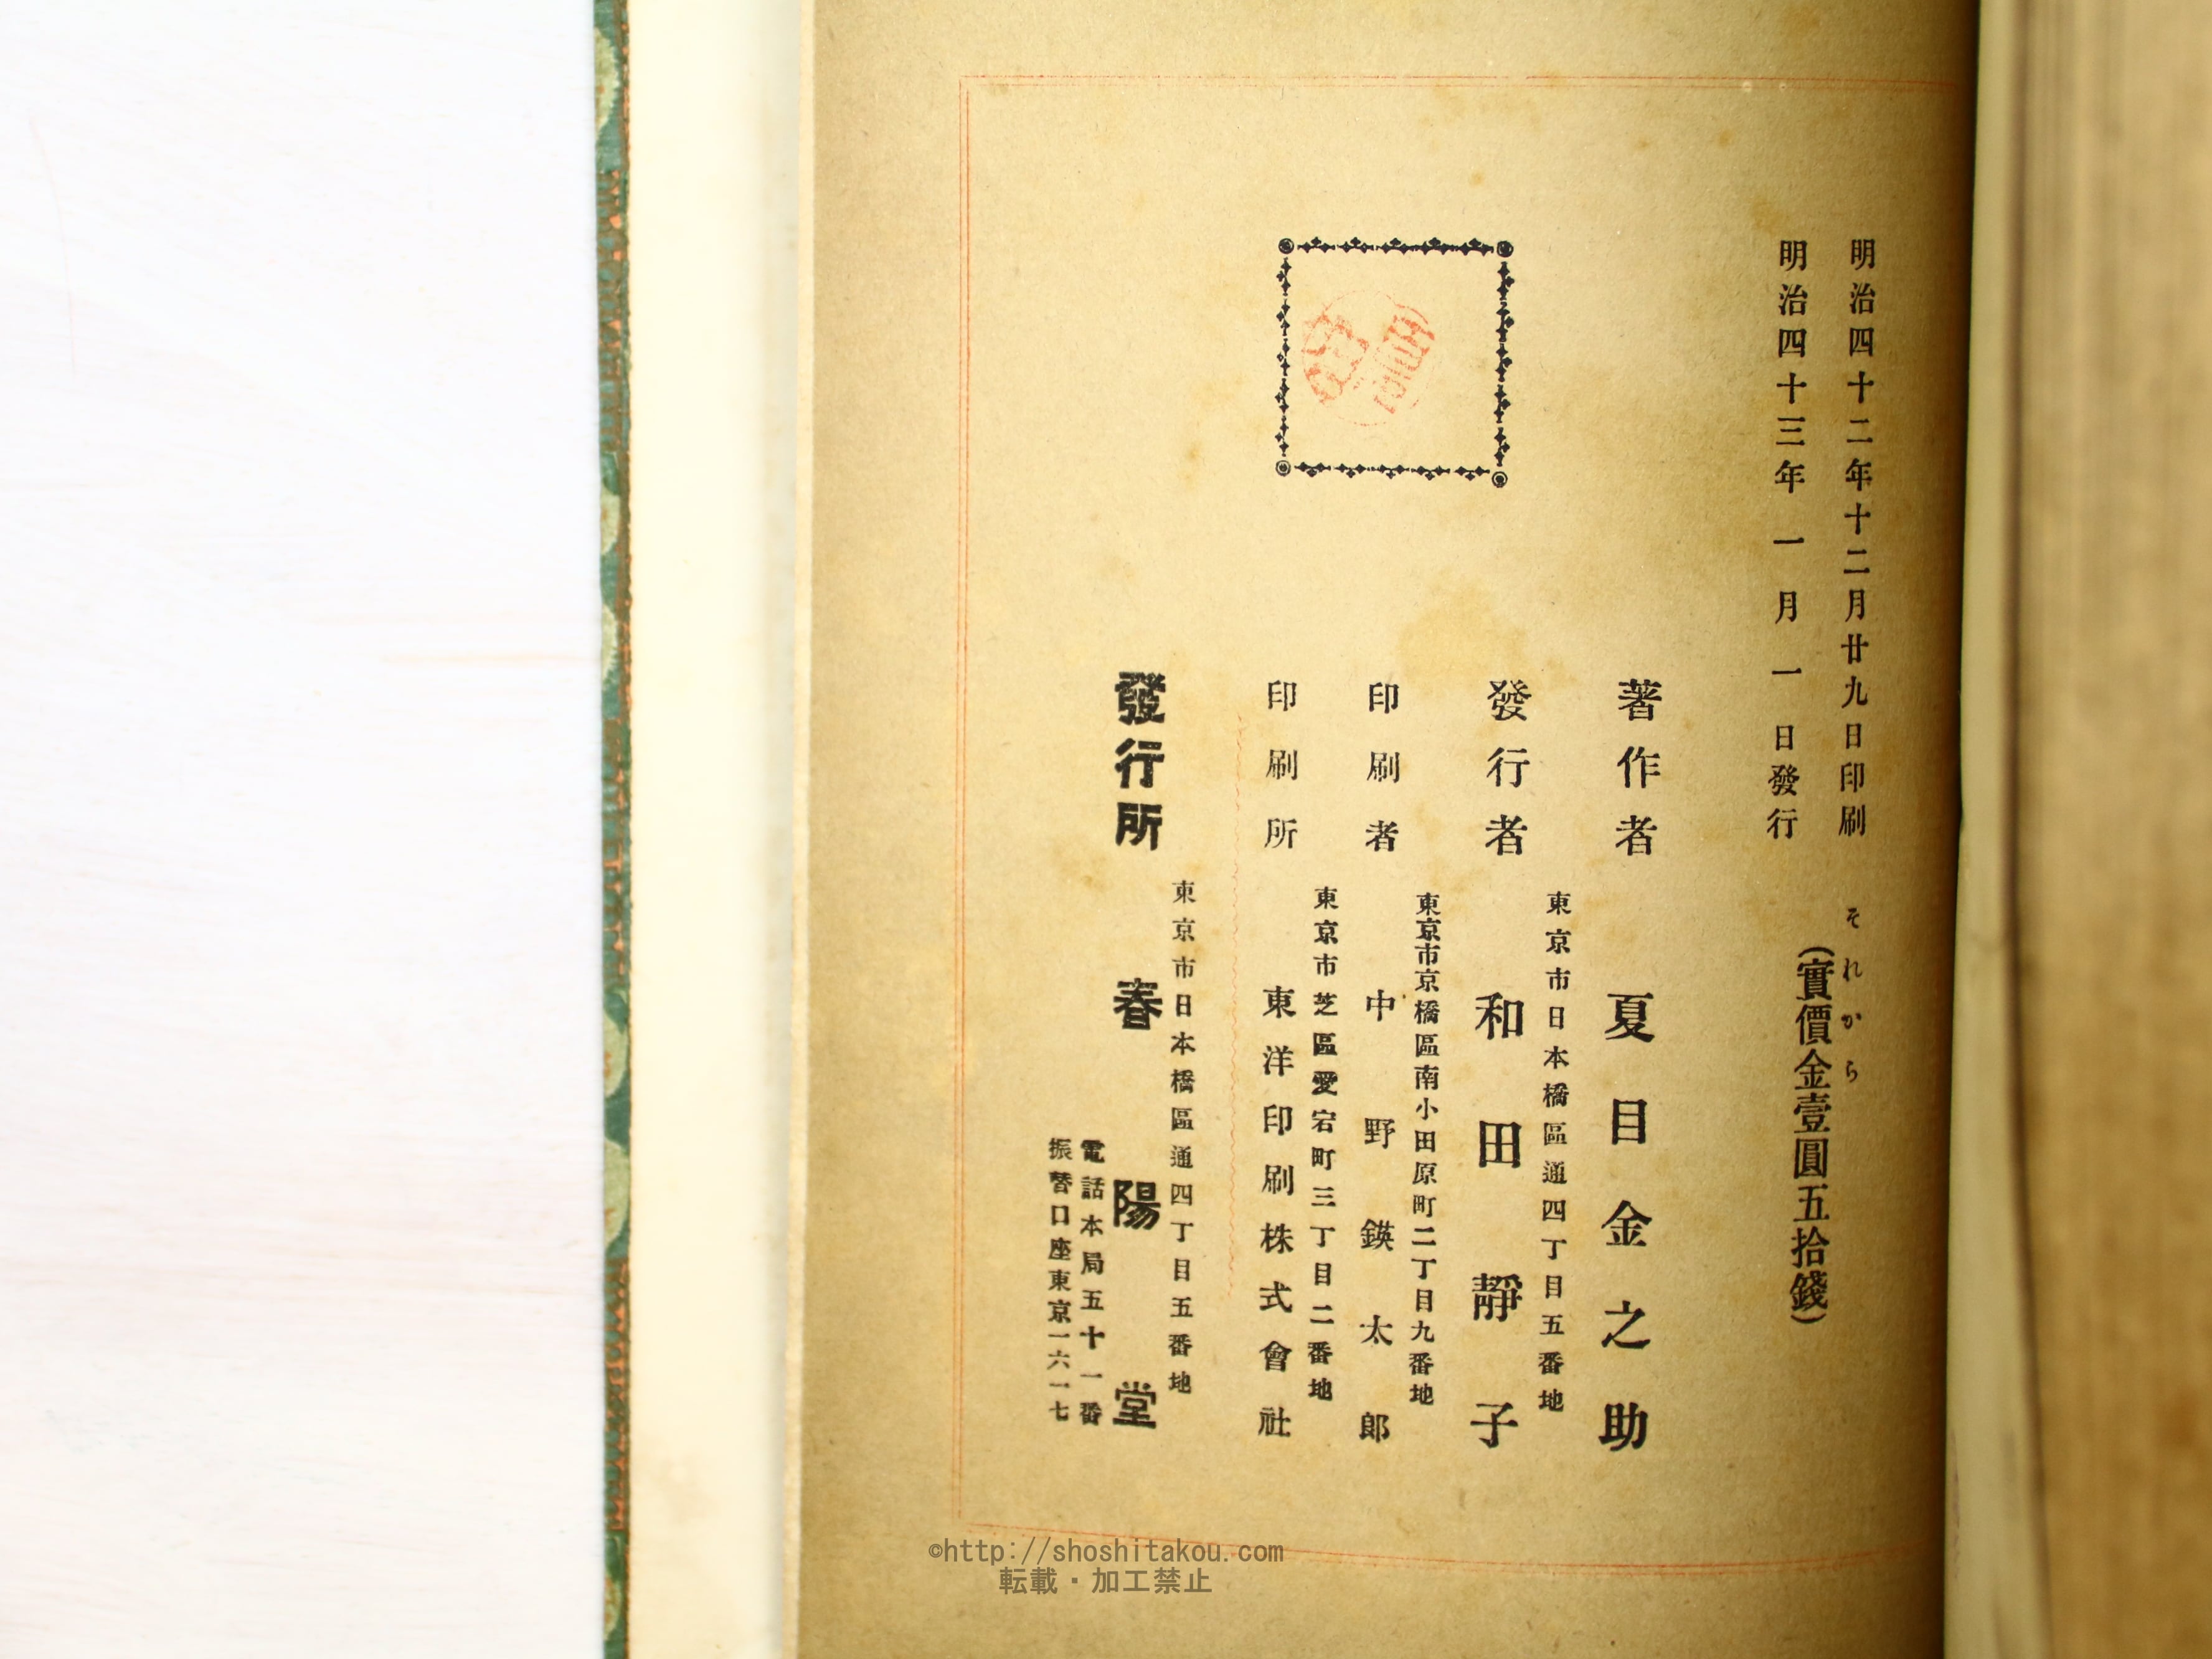 明治四十二年十二月廿九日印刷
明治四十三年一月一日發行
それから
(實價金壹圓五拾錢)
著作者 夏目金之助
東京市日本橋區通四丁目五番地
發行者 和田靜子
東京市京橋區南小田原町二丁目九番地
印刷者 中野鍈太郎
東京市芝區愛宕町三丁目二番地
印刷所 東洋印刷株式會社
東京市日本橋區通四丁目五番地
發行所 春陽堂
電話本局五十一番
振替口座東京一六一七
©http://shoshitakou.com
転載・加工禁止